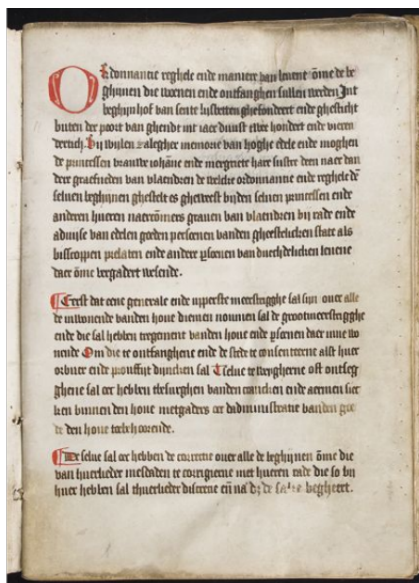 Ordonnantie reghele ende maniere van levene ōme de be
ghijnen die woenen ende ontfanghen sullen werden Int
beghijnhof van sente lijsbetten ghefondeert ende ghesticht
buten der poort van ghendt int iaer duust twee hondert ende vieren
dertich. Bij wijlen zalegher memorie van hoghe edele ende moghen
de princessen vrauwe iohane ende mergriete hare suster deen naer dan
dere graefneden van vlaendren de welcke ordonnantie ende reghele dē
selven beghijnen ghestelt es gheweest bijden selven princessen ende
anderen hueren naercōmers graven van vlaendren bij rade ende
advise van edelen goeden persoenen vanden gheestelicken state als
bisscoppen prelaten ende andere psoenen van duechdelicken levene
daer ōme vergadert wesende.
Eerst dat eene generale ende upperste meerstrigghe sal sijn over alle
de inwonende vanden hove diemen noumen sal de grootmeerstrigghe
ende die sal hebben tregement vanden hove ende psoenen daer inne wo
nende Om die te ontfanghene ende de stede te consenteerne alst huer
orbuer ende prouffijt dijncken sal Tselve te weygherne oft ontseg
ghene sal oec hebben tbesurghen vanden crancken ende aermen siec
ken binnen den hove metgaders oec dadministratie vanden goe
de den hove toebehoorende.
De selve sal oec hebben de correctie over alle de beghijnen ōme die
van huerlieder mesdaden te corrigierne met hueren rade die so bij
huer hebben sal thuerlieder discrecie eñ na dz de sake begheert.